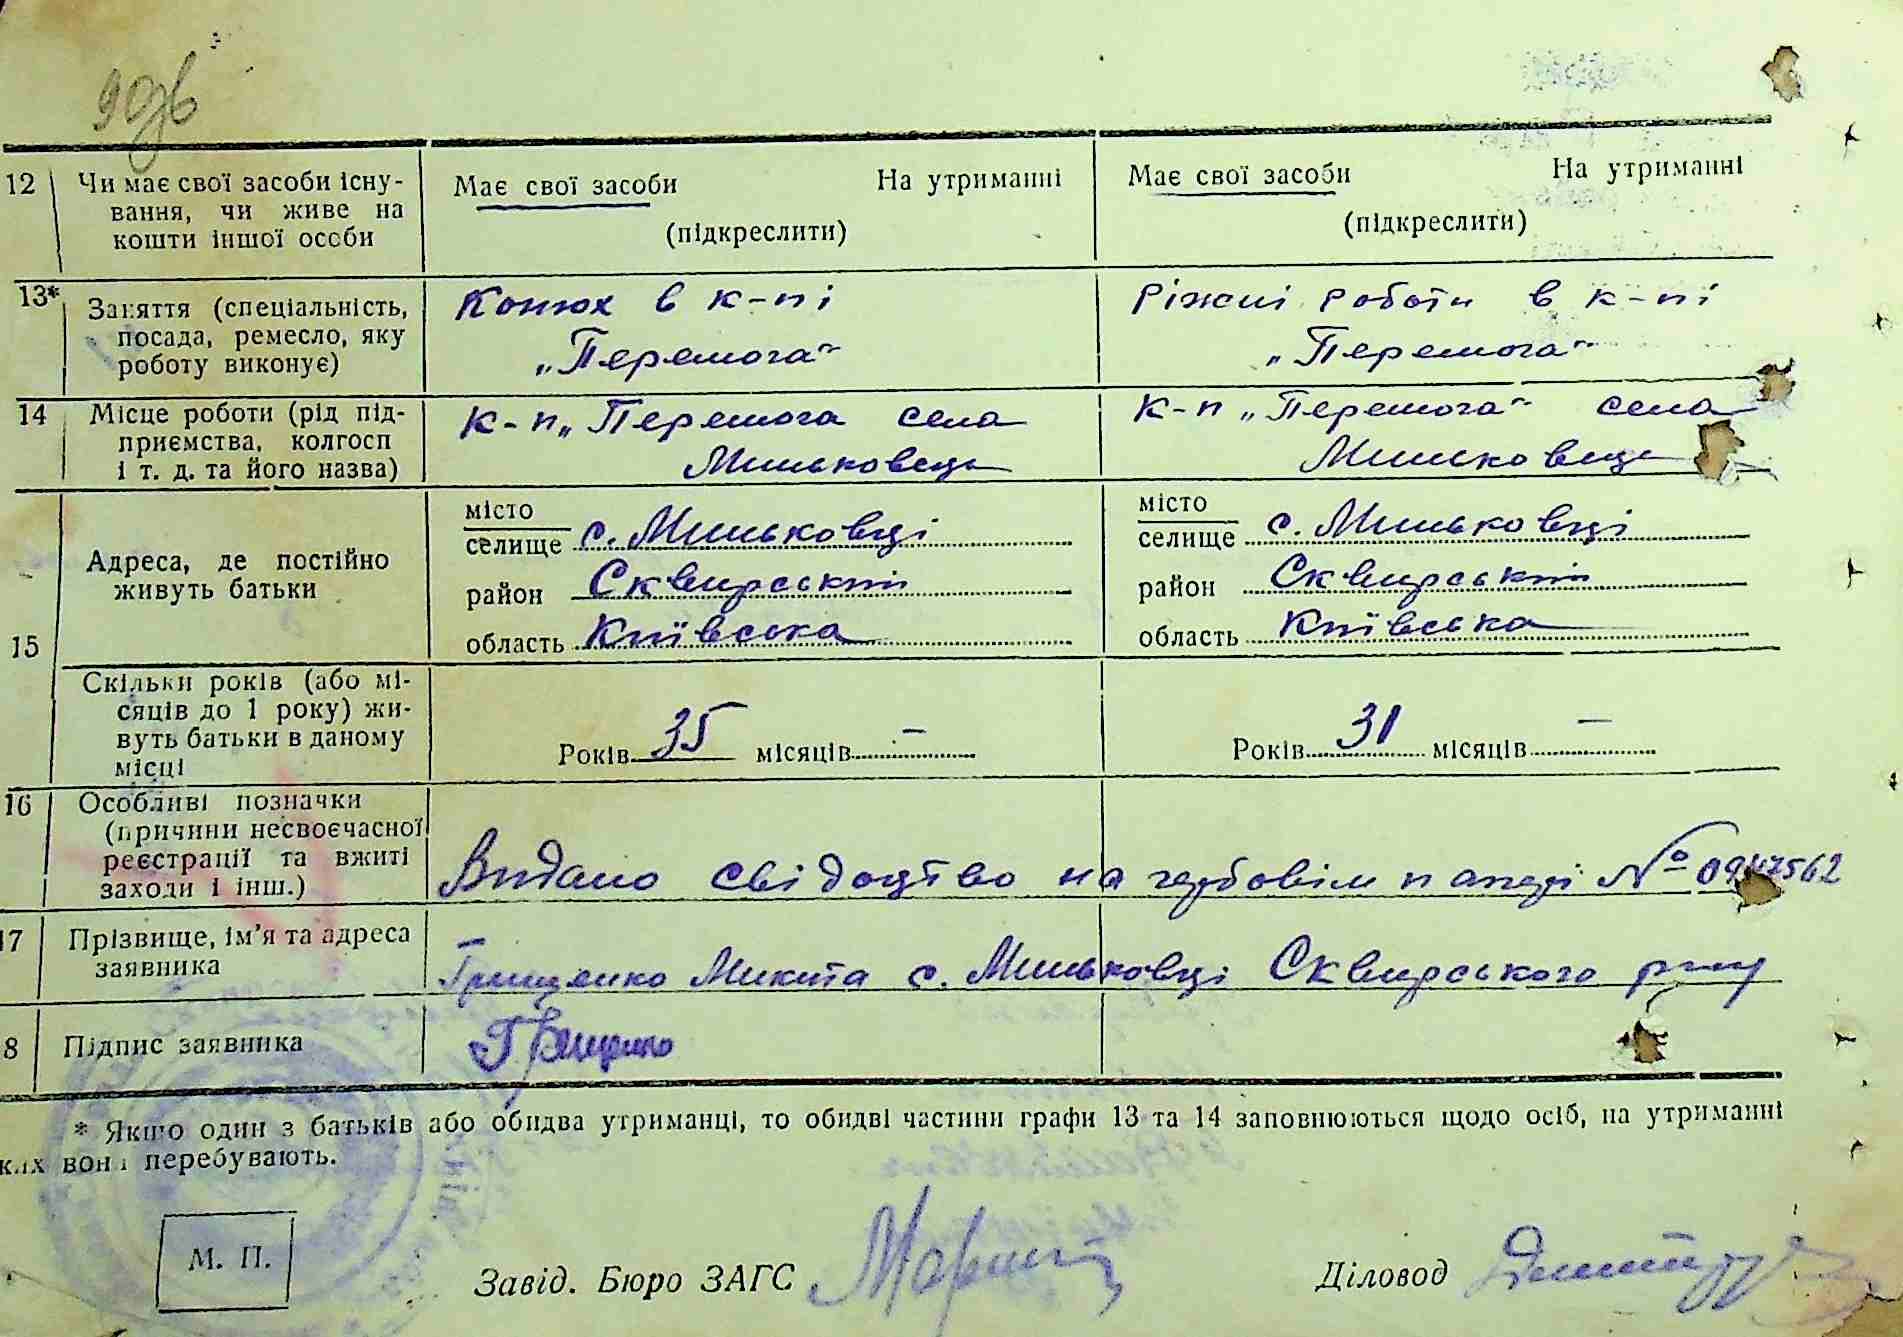 12 Чи має свої засоби існу-
вання, чи живе на
кошти іншої особи
Має свої засоби На утриманні
(підкреслити)
Має свої засоби На утриманні
(підкреслити)
13* Заняття (спеціальність,
посада, ремесло, яку
роботу виконує)
Конюх в к-пі
„Перемога"
Ріжні роботи в к-пі
„Перемога"
14 Місце роботи (рід під-
приємства, колгосп
і т. д. та його назва)
к-п „Перемога села
Миньковець
к-п „Перемога" села
Миньковець
15 Адреса, де постійно
живуть батьки
місто
селище с. Миньковці
район Сквирський
область Київська
місто
селище с. Миньковці
район Сквирський
область Київська
Скільки років (або мі-
сяців до 1 року) жи-
вуть батьки в даному
місці
Років 35 місяців —
Років 31 місяців —
16 Особливі позначки
(причини несвоєчасної
реєстрації та вжиті
заходи і інш.)
Видано свідоцтво на гербовім папері №
17 Прізвище, ім'я та адреса
заявника
Грищенко Микита с. Миньковці Сквирського р-ну
8 Підпис заявника
Грищенко
* Якщо один з батьків або обидва утриманці, то обидві частини графи 13 та 14 заповнюються щодо осіб, на утриманні
ких вони перебувають.
М. П.
Завід. Бюро ЗАГС
Діловод